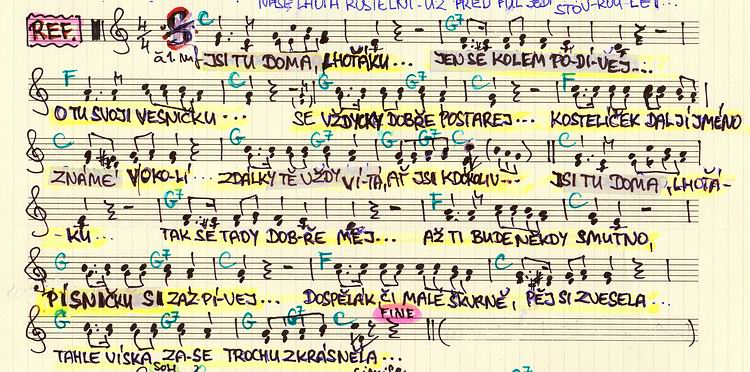 NAŠE LHOTA KOSTELNÍ - UŽ PŘED PŮL
REF. 4/4 C G7
à 1. JSI TU DOMA, LHOŤÁKU... JEN SE KOLEM PO-DÍ-VEJ...
F C G F
O TU SVOJI VESNIČKU... SE VŽDYCKY DOBŘE POSTAREJ... KOSTELÍČEK DAL JÍ JMÉNO
C G G7 G G7 C C
ZNÁMÉ VOKO-LÍ... ZDÁLKY TĚ VŽDY VÍ-TÁ, AŤ JSI KDOKOLIV... JSI TU DOMA, LHOŤÁ-
G7 F C
-KU... TAK SE TADY DOB-ŘE MĚJ... AŽ TI BUDE NĚKDY SMUTNO,
G G7 C F C
PÍSNIČKU SI ZAZPÍ-VEJ... DOSPĚLÁK, ČI MALÉ ŠKVRNĚ, PĚJ SI ZVESELA...
G G7 G G7 C FINE
TAHLE VÍSKA, ZA-SE TROCHU ZKRÁSNĚLA...